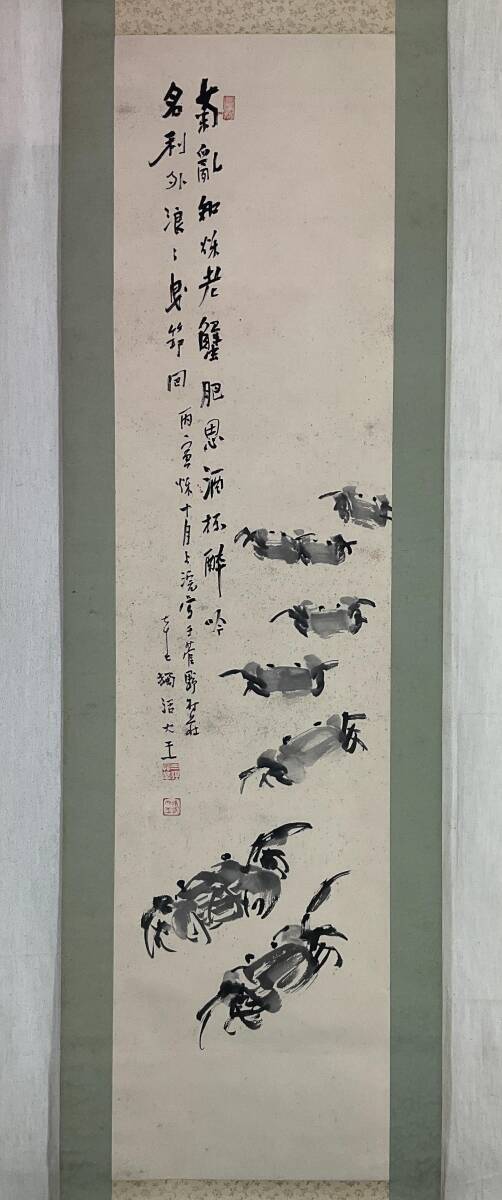 菊亂知秌老蟹肥思酒杯醉吟
名利外浪々曳節回
丙寅秌十月上浣寫于菅野村莊
七十七獨活大王